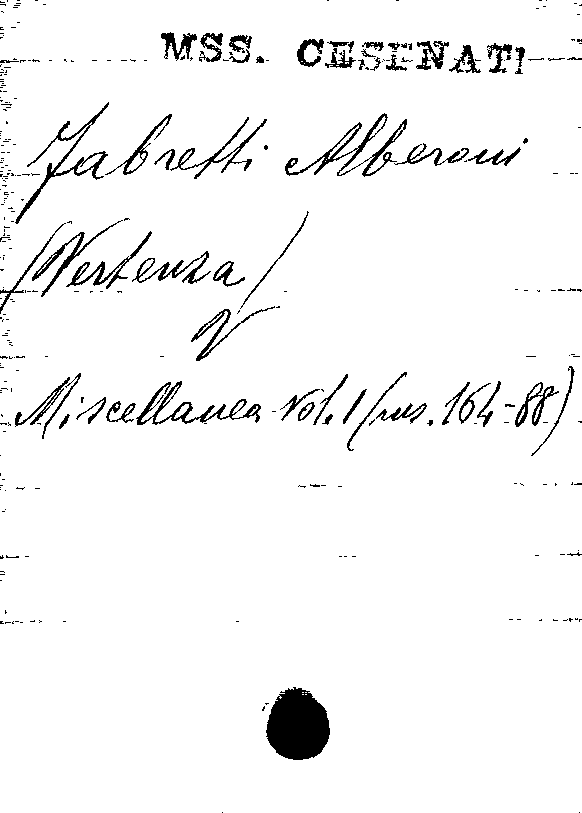 MSS. CESENATI
Fabretti Alberoni
(Vertenza)
V
Miscellanea Vol. 1 (ms. 164-88)